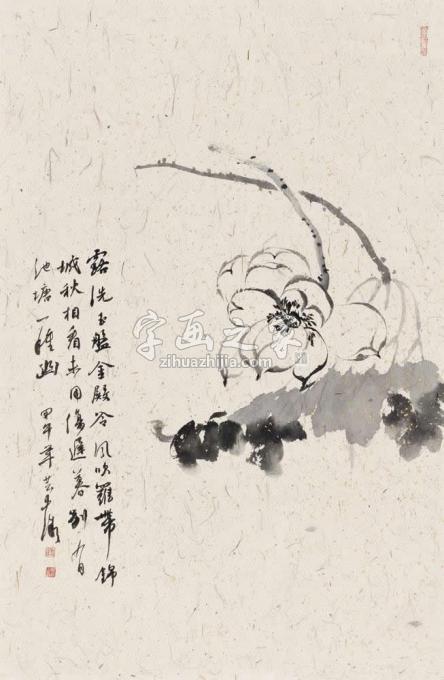 露洗玉盤金殿冷風吹羅帶錦
城秋相看未用傷遲暮別有
池塘一種幽
甲午年
字画之家
zihuazhijia.com